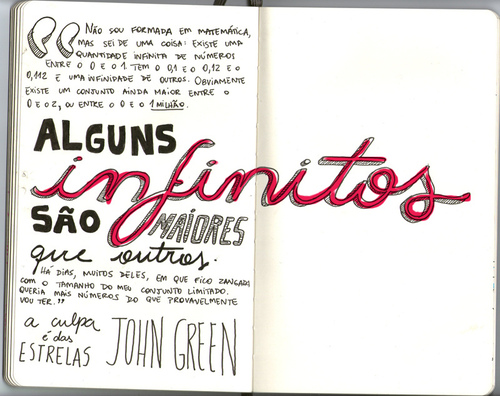 “NÃO SOU FORMADA EM MATEMÁTICA,
MAS SEI DE UMA COISA: EXISTE UMA
QUANTIDADE INFINITA DE NÚMEROS
ENTRE O 0 E O 1. TEM O 0,1 E O 0,12 E O
0,112 E UMA INFINIDADE DE OUTROS. OBVIAMENTE
EXISTE UM CONJUNTO AINDA MAIOR ENTRE O
0 E O 2, OU ENTRE O 0 E O 1 MILHÃO.
ALGUNS
infinitos
SÃO MAIORES
que outros.
HÁ DIAS, MUITOS DELES, EM QUE FICO ZANGADA
COM O TAMANHO DO MEU CONJUNTO LIMITADO.
QUERIA MAIS NÚMEROS DO QUE PROVAVELMENTE
VOU TER.”
a culpa
é das
ESTRELAS
JOHN GREEN